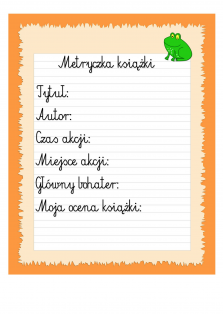 Metryczka książki
Tytuł:
Autor:
Czas akcji:
Miejsce akcji:
Główny bohater:
Moja ocena książki: